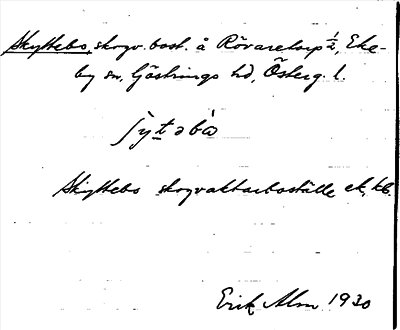 Skyttebo, skogv.bost. å Rövaretorp ½, Eke-
by sn, Göstrings hd, Österg. l.
ʃyt̠əbò
Skyttebo skogvaktarboställe ek. kb.
Erik Alm 1930